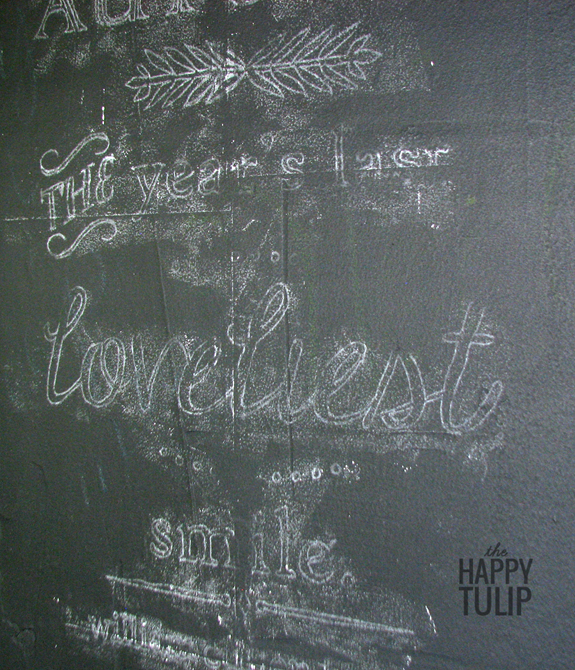 THE year's last
loveliest
smile.
the
HAPPY
TULIP